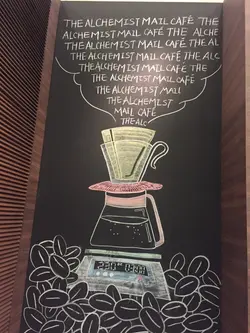 THE ALCHEMIST MAIL CAFÉ THE
ALCHEMIST MAIL CAFÉ THE ALCHE
THE ALCHEMIST MAIL CAFÉ THE AL
THE ALCHEMIST MAIL CAFÉ THE ALC
THE ALCHEMIST MAIL CAFÉ
ALCHEMIST MAIL CAFÉ THE
THE ALCHEMIST MAIL CAFÉ
THE ALCHEMIST MAIL
THE ALCHEMIST
MAIL CAFÉ
THE ALC